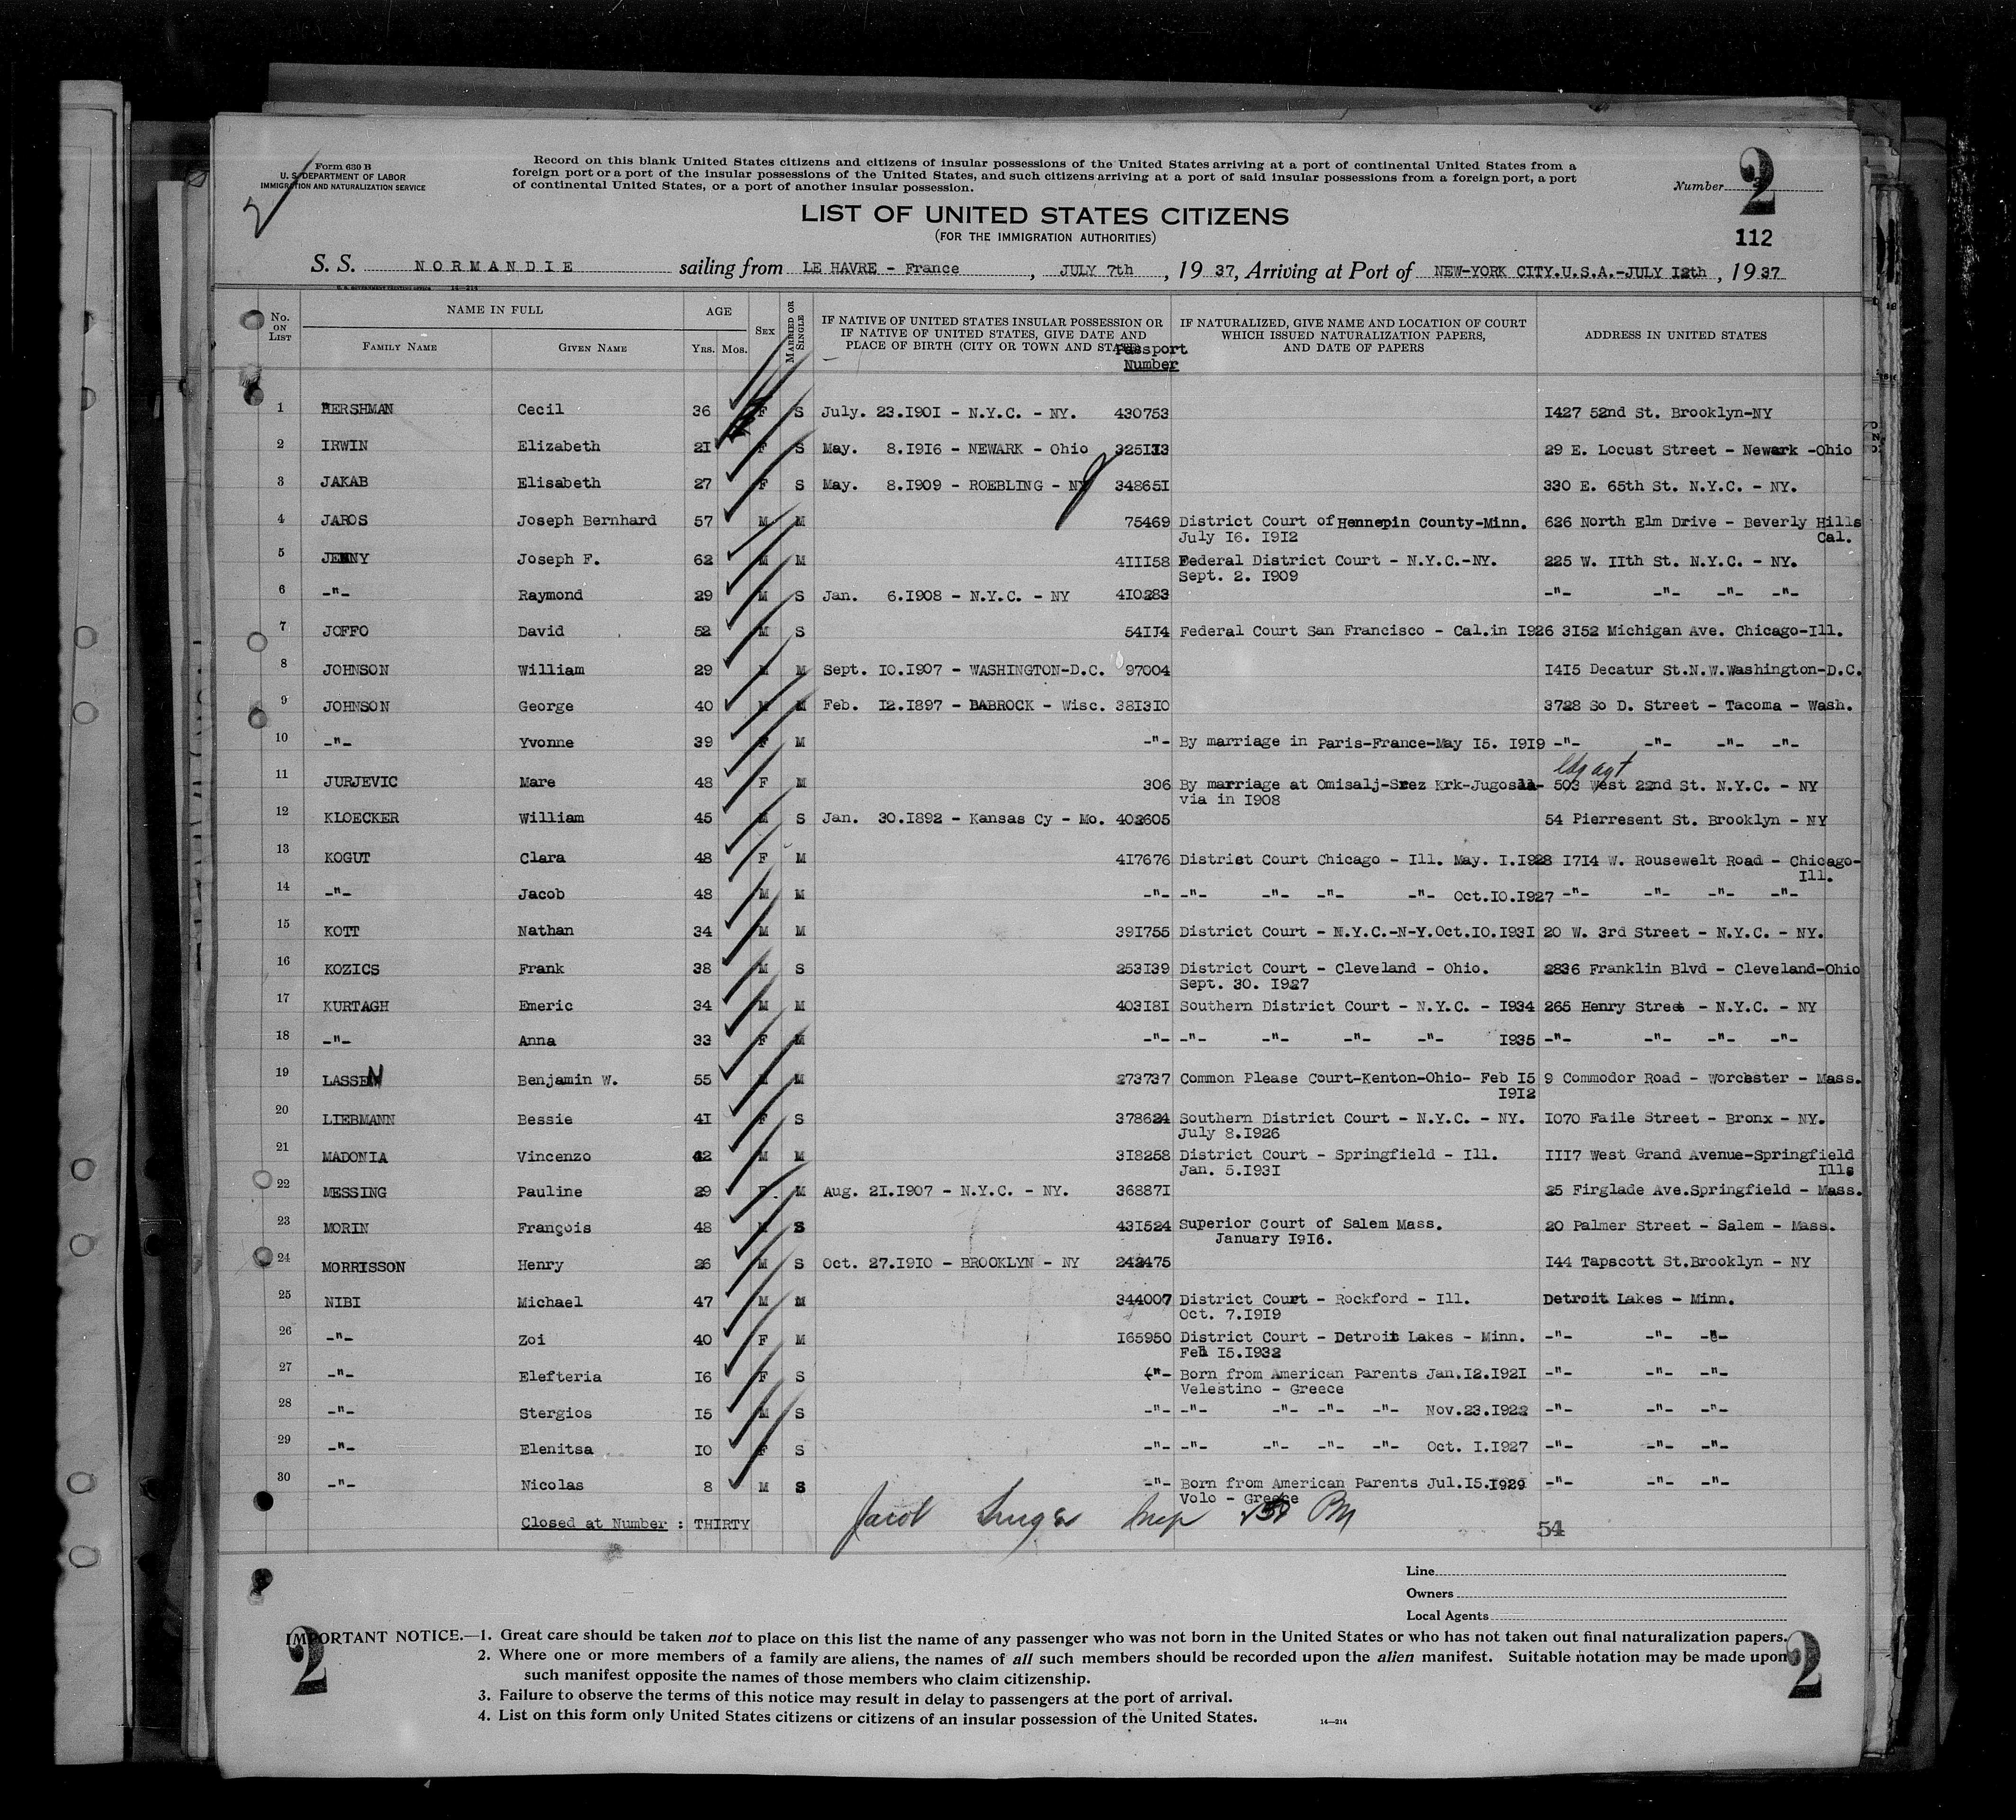 Form 630 B
U. S. DEPARTMENT OF LABOR
IMMIGRATION AND NATURALIZATION SERVICE
2
Record on this blank United States citizens and citizens of insular possessions of the United States arriving at a port of continental United States from a
foreign port or a port of the insular possessions of the United States, and such citizens arriving at a port of said insular possessions from a foreign port, a port
of continental United States, or a port of another insular possession.
Number 2
112
LIST OF UNITED STATES CITIZENS
(FOR THE IMMIGRATION AUTHORITIES)
S. S. NORMANDIE sailing from LE HAVRE - France, JULY 7th, 1937, Arriving at Port of NEW-YORK CITY.U.S.A.-JULY I2th, 1937
U. S. GOVERNMENT PRINTING OFFICE 14—214
No. ON LIST
NAME IN FULL
FAMILY NAME GIVEN NAME
AGE
YRS. MOS.
SEX
MARRIED OR SINGLE
IF NATIVE OF UNITED STATES INSULAR POSSESSION OR
IF NATIVE OF UNITED STATES, GIVE DATE AND
PLACE OF BIRTH (CITY OR TOWN AND STATE)
Passport
Number
IF NATURALIZED, GIVE NAME AND LOCATION OF COURT
WHICH ISSUED NATURALIZATION PAPERS,
AND DATE OF PAPERS
ADDRESS IN UNITED STATES
1 HERSHMAN Cecil 36 F S July. 23.I90I - N.Y.C. - NY. 430753 I427 52nd St. Brooklyn-NY
2 IRWIN Elizabeth 2I F S May. 8.I9I6 - NEWARK - Ohio 325II3 29 E. Locust Street - Newark -Ohio
3 JAKAB Elisabeth 27 F S May. 8.I909 - ROEBLING - NY 34865I 330 E. 65th St. N.Y.C. - NY.
4 JAROS Joseph Bernhard 57 M M 75469 District Court of Hennepin County-Minn. 626 North Elm Drive - Beverly Hills
July I6. I9I2 Cal.
5 JENNY Joseph F. 62 M M 4III58 Federal District Court - N.Y.C.-NY. 225 W. IIth St. N.Y.C. - NY.
Sept. 2. I909
6 -"- Raymond 29 M S Jan. 6.I908 - N.Y.C. - NY 4I0283 -"- -"- -"- -"-
7 JOFFO David 52 M S 54II4 Federal Court San Francisco - Cal.in I926 3I52 Michigan Ave. Chicago-Ill.
8 JOHNSON William 29 M M Sept. I0.I907 - WASHINGTON-D.C. 97004 I4I5 Decatur St.N.W.Washington-D.C.
9 JOHNSON George 40 M M Feb. I2.I897 - BABROCK - Wisc. 38I3I0 3728 So D. Street - Tacoma - Wash.
10 -"- Yvonne 39 F M -"- By marriage in Paris-France-May I5. I9I9 -"- -"- -"- -"-
11 JURJEVIC Mare 48 F M 306 By marriage at Omisalj-Srez Krk-Jugosla- 503 West 22nd St. N.Y.C. - NY
via in I908
12 KLOECKER William 45 M S Jan. 30.I892 - Kansas Cy - Mo. 402605 54 Pierresent St. Brooklyn - NY
13 KOGUT Clara 48 F M 4I7676 District Court Chicago - Ill. May. I.I928 I7I4 W. Rousewelt Road - Chicago-
Ill.
14 -"- Jacob 48 M M -"- -"- -"- -"- -"- Oct.I0.I927 -"- -"- -"- -"-
15 KOTT Nathan 34 M M 39I755 District Court - N.Y.C.-N-Y.Oct.I0.I93I 20 W. 3rd Street - N.Y.C. - NY.
16 KOZICS Frank 38 M S 253I39 District Court - Cleveland - Ohio. 2836 Franklin Blvd - Cleveland-Ohio
Sept. 30. I927
17 KURTAGH Emeric 34 M M 403I8I Southern District Court - N.Y.C. - I934 265 Henry Street - N.Y.C. - NY
18 -"- Anna 33 F M -"- -"- -"- -"- -"- I935 -"- -"- -"- -"-
19 LASSEN Benjamin W. 55 M M 273737 Common Please Court-Kenton-Ohio- Feb I5 9 Commodor Road - Worcester - Mass.
I9I2
20 LIEBMANN Bessie 4I F S 378624 Southern District Court - N.Y.C. - NY. I070 Faile Street - Bronx - NY.
July 8.I926
21 MADONIA Vincenzo 42 M M 3I8258 District Court - Springfield - Ill. III7 West Grand Avenue-Springfield
Jan. 5.I93I Ills
22 MESSING Pauline 29 F M Aug. 2I.I907 - N.Y.C. - NY. 36887I 25 Firglade Ave.Springfield - Mass.
23 MORIN François 48 M S 43I524 Superior Court of Salem Mass. 20 Palmer Street - Salem - Mass.
January I9I6.
24 MORRISSON Henry 26 M S Oct. 27.I9I0 - BROOKLYN - NY 242475 I44 Tapscott St.Brooklyn - NY
25 NIBI Michael 47 M M 344007 District Court - Rockford - Ill. Detroit Lakes - Minn.
Oct. 7.I9I9
26 -"- Zoi 40 F M I65950 District Court - Detroit Lakes - Minn. -"- -"- -"-
Feb I5.I932
27 -"- Elefteria I6 F S -"- Born from American Parents Jan.I2.I92I -"- -"- -"-
Velestino - Greece
28 -"- Stergios I5 M S -"- -"- -"- -"- -"- Nov.23.I922 -"- -"- -"-
29 -"- Elenitsa I0 F S -"- -"- -"- -"- -"- Oct. I.I927 -"- -"- -"-
30 -"- Nicolas 8 M S -"- Born from American Parents Jul.I5.I929 -"- -"- -"-
Volo - Greece
Closed at Number : THIRTY
Jacob
54
Line
Owners
Local Agents
IMPORTANT NOTICE.—1. Great care should be taken not to place on this list the name of any passenger who was not born in the United States or who has not taken out final naturalization papers.
2. Where one or more members of a family are aliens, the names of all such members should be recorded upon the alien manifest. Suitable notation may be made upon
such manifest opposite the names of those members who claim citizenship.
3. Failure to observe the terms of this notice may result in delay to passengers at the port of arrival.
4. List on this form only United States citizens or citizens of an insular possession of the United States. 14—214
2
2